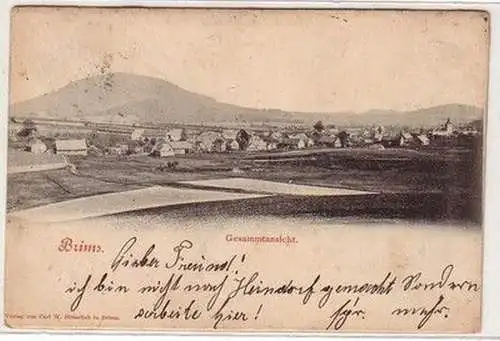 Brims. Gesammtansicht.
Lieber Freund!
ich bin nicht nach Heindorf gemacht Sondern
arbeite hier! mehr.
Verlag von Carl W. in Brims.